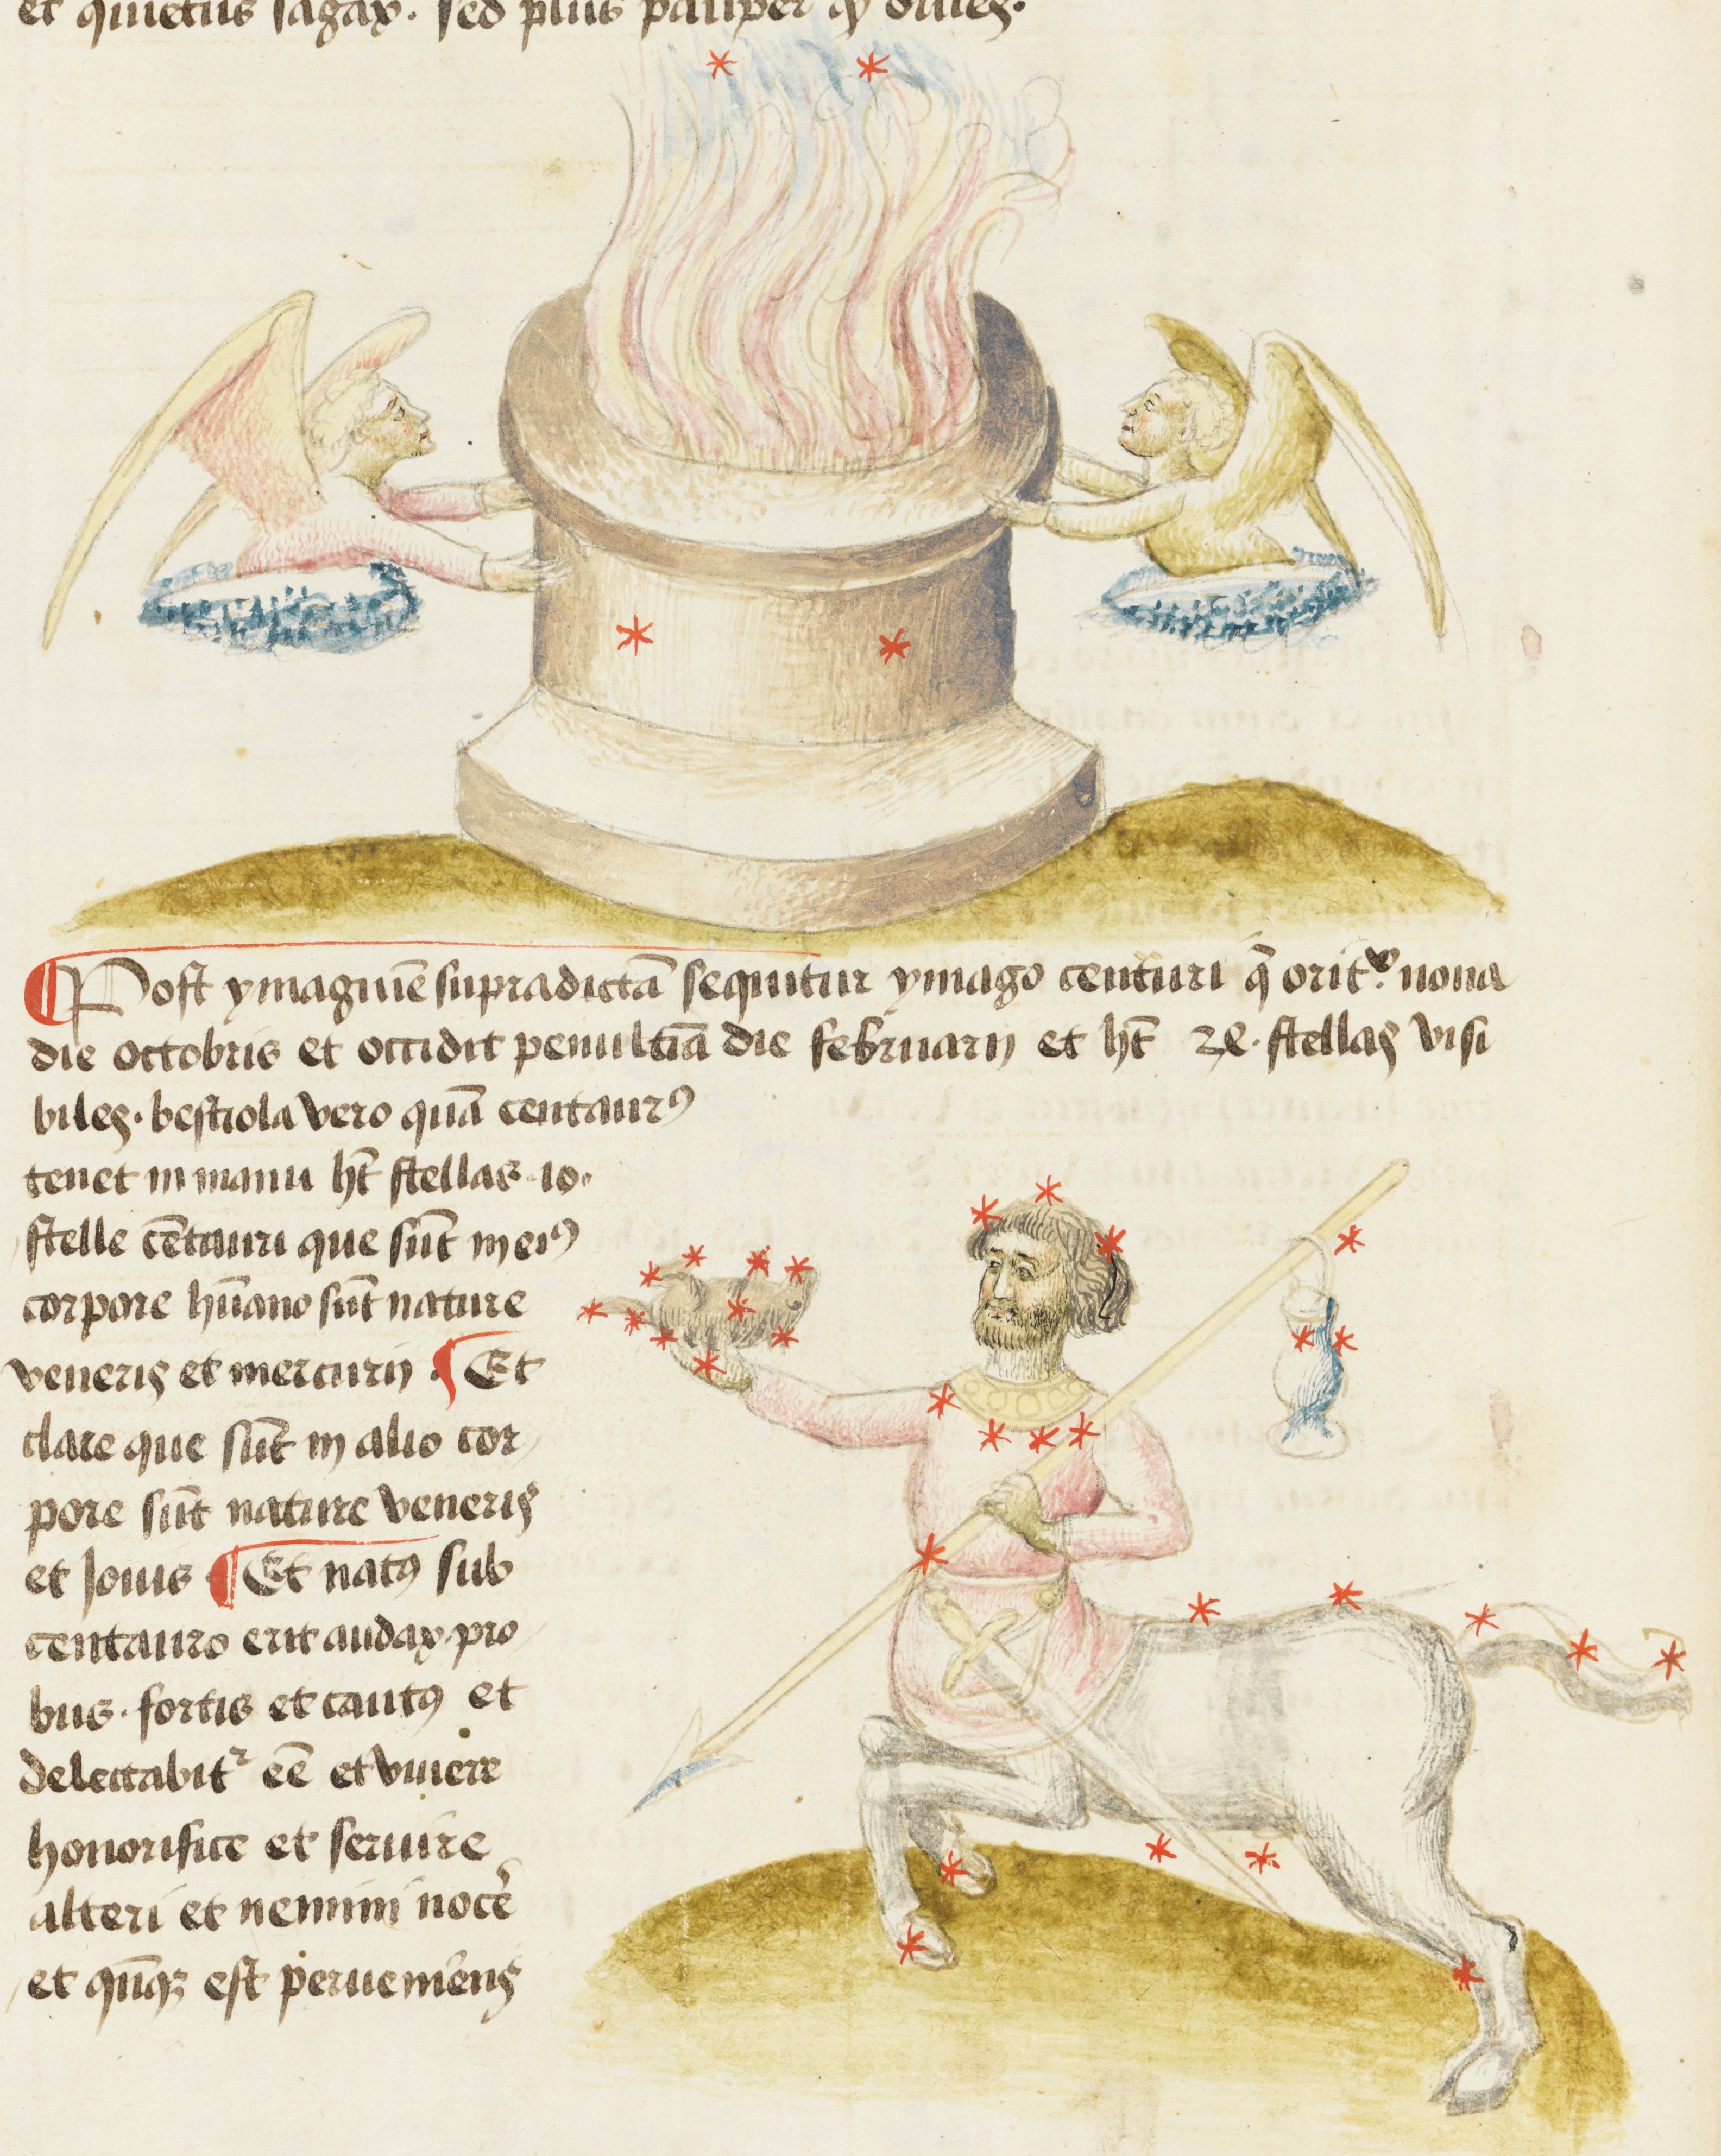 et quietus sagax. sed plus pauper qͣ diues.
Post ymaginē supradictā sequitur ymago centuri q̄ orit᷑. nona
die octobris et occidit penultīa die februarij et ht̄ 28. stellas visi
biles. bestiola vero quā centaurꝰ
tenet in manu ht̄ stellas .10.
stelle cētauri que sūt in eiꝰ
corpore hūano sūt nature
veneris et mercurij. Et
clare que sūt in alio cor
pore sūt nature veneris
et Jouis Et natꝰ sub
centauro erit audax. pro
bus. fortis et cautꝰ et
delectabitᷣ eē et viuere
honorifice et seruire
alteri et nemini nocē
et est perueniens